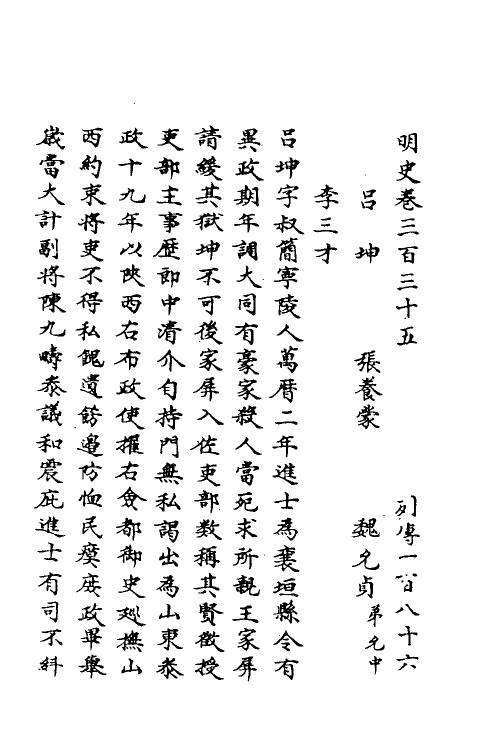 明史卷三百三十五 列傳一百八十六
呂坤 張養蒙 魏允貞 弟允中
李三才
呂坤字叔簡寧陵人萬曆二年進士為襄垣縣令有
異政期年調大同有豪家殺人當死求所親王家屏
請緩其獄坤不可後家屏入佐吏部數稱其賢徵授
吏部主事歷郎中清介自持門無私謁出為山東叅
政十九年以陜西右布政使擢右僉都御史廵撫山
西約束將吏不得私餽遺飭邊防恤民瘼庶政畢舉
歲當大計副將陳九疇叅議和震庇進士有司不糾